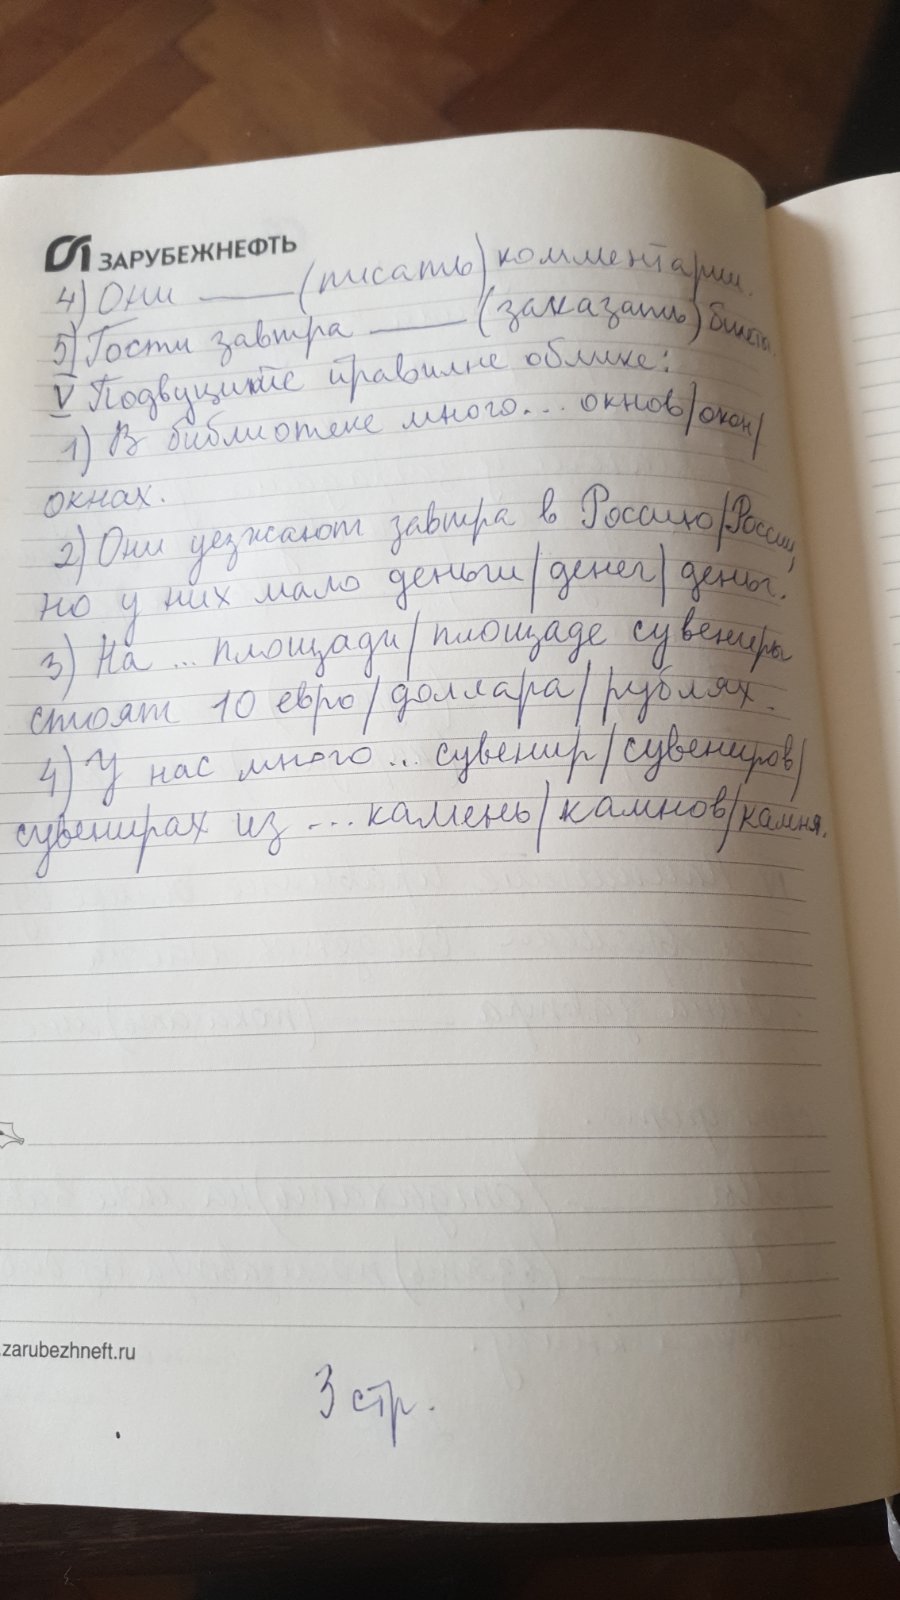 ЗАРУБЕЖНЕФТЬ
4) Они ___ (писать) комментарии.
5) Гости завтра ___ (заказать) билеты.
V Подвуците правилне облике:
1) В библиотеке много... окнов/окон/
окнах.
2) Они уезжают завтра в Россию/России,
но у них мало деньги/денег/деньг.
3) На ... площади/площаде сувениры
стоят 10 евро/доллара/рублях.
4) У нас много ... сувенир/сувениров/
сувенирах из ... камень/камнов/камня.
.zarubezhneft.ru
3 стр.